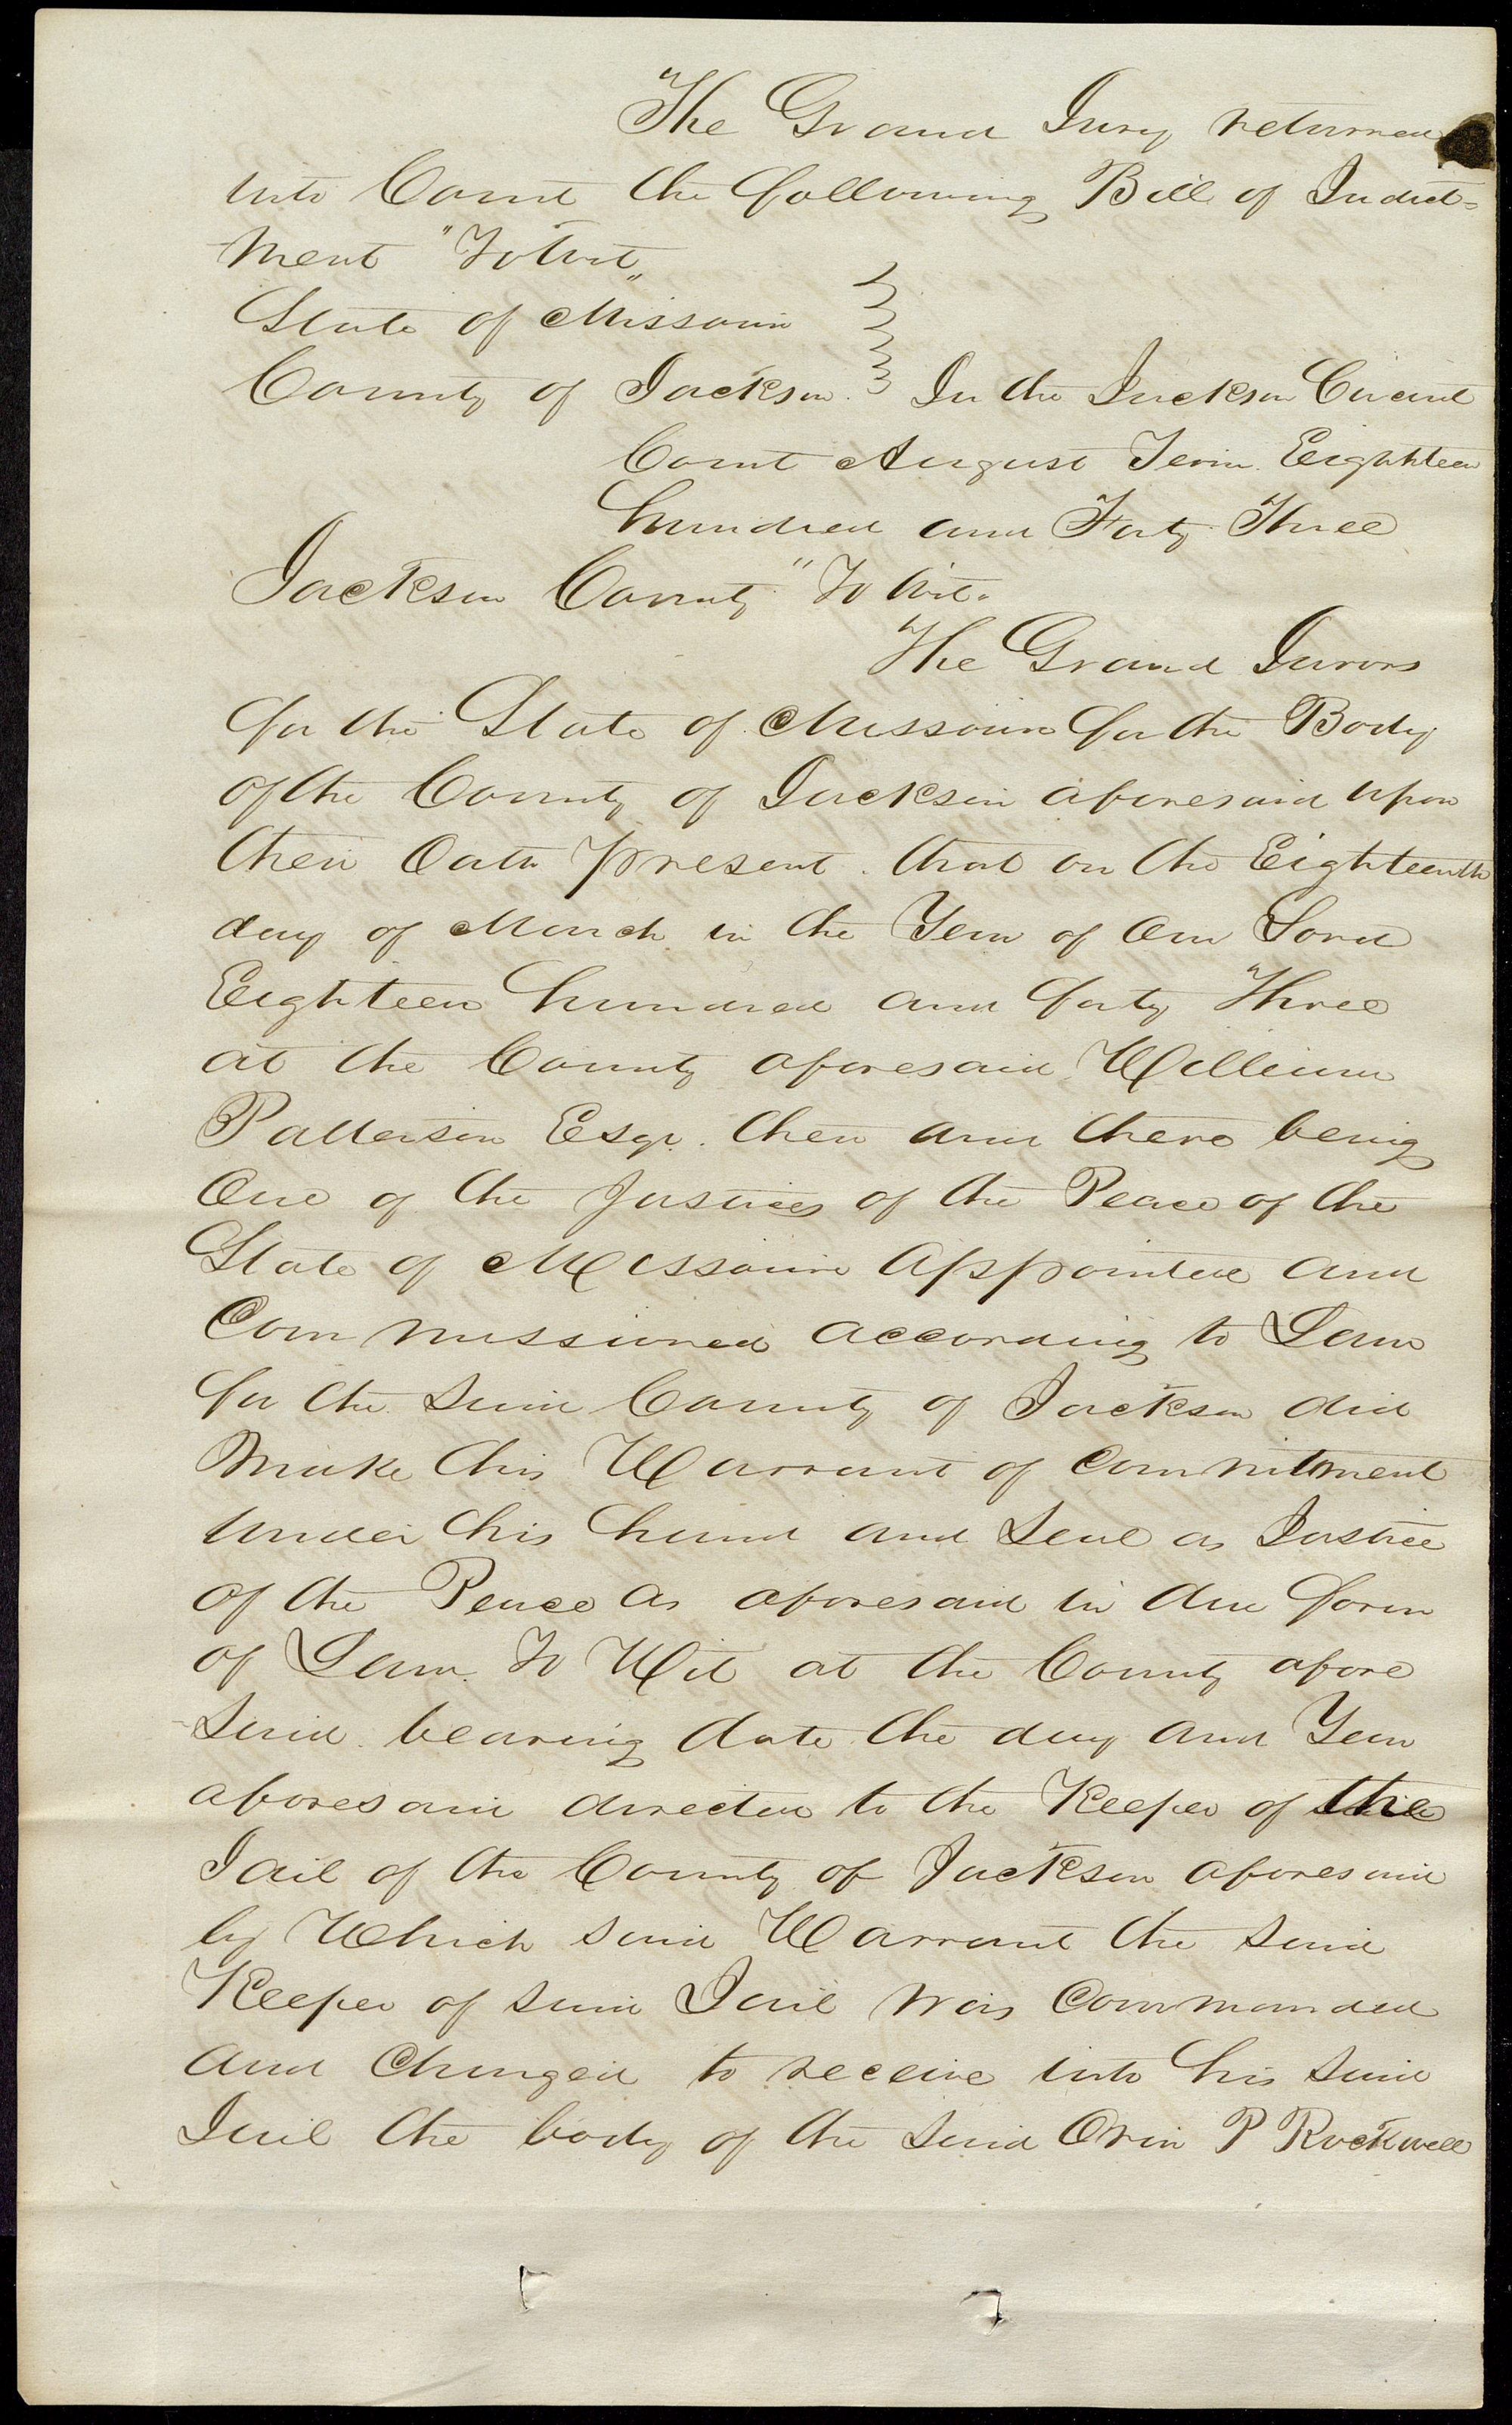 The Grand Jury returned
into Court the following Bill of Indict=
ment "To Wit"
State of Missouri
County of Jackson. In the Jackson Circuit
Court August Term Eighteen
hundred and Forty Three
Jackson County "To Wit.
The Grand Jurors
for the State of Missouri for the Body
of the County of Jackson aforesaid upon
their Oath present. that on the Eighteenth
day of March in the Year of Our Lord
Eighteen hundred and forty Three
at the County aforesaid William
Patterson Esqr. then and there being
One of the Justices of the Peace of the
State of Missouri Appointed and
Commissioned according to Law
for the said County of Jackson did
Make his Warrant of Commitment
under his hand and Seal as Justice
of the Peace as aforesaid in due form
of Law. To Wit at the County afore
said. bearing date the day and Year
aforesaid directed to the Keeper of the
Jail of the County of Jackson aforesaid
by Which said Warrant the said
Keeper of said Jail was Commanded
and Charged to receive into his said
Jail the body of the said Orin P Rockwell